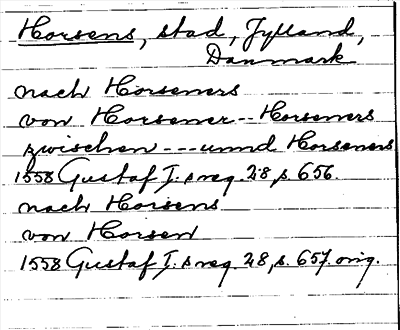 Horsens, stad, Jylland,
Danmark
nach Horseners
von Horsener -- Horseners
zwischen --- unnd Horseners
1558 Gustaf I:s reg. 28, s. 656.
nach Horsens
von Horsen
1558 Gustaf I:s reg. 28, s. 657. orig.